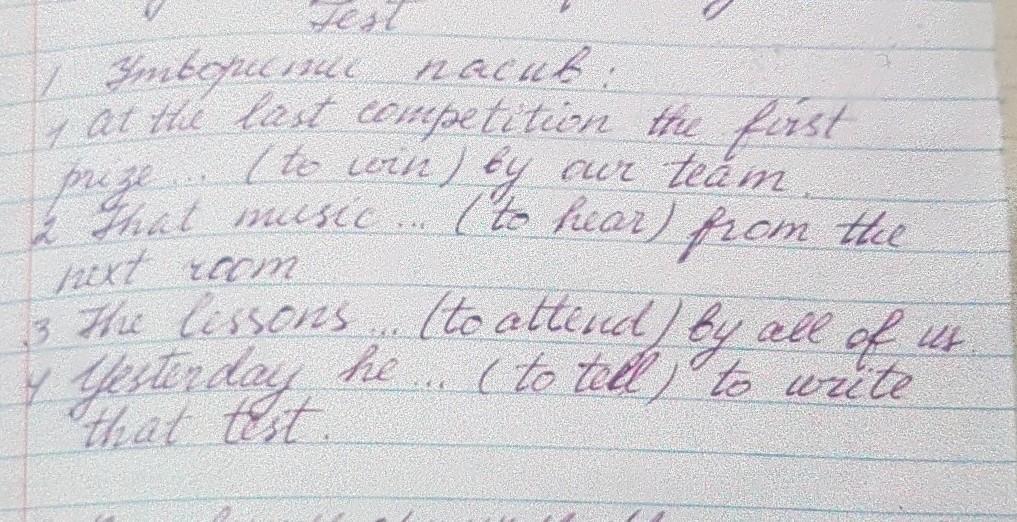 Test
1 Утворити пасив:
1 at the last competition the first
prize... (to win) by our team.
2 That music... (to hear) from the
next room
3 The lessons... (to attend) by all of us.
4 Yesterday he... (to tell) to write
that test.